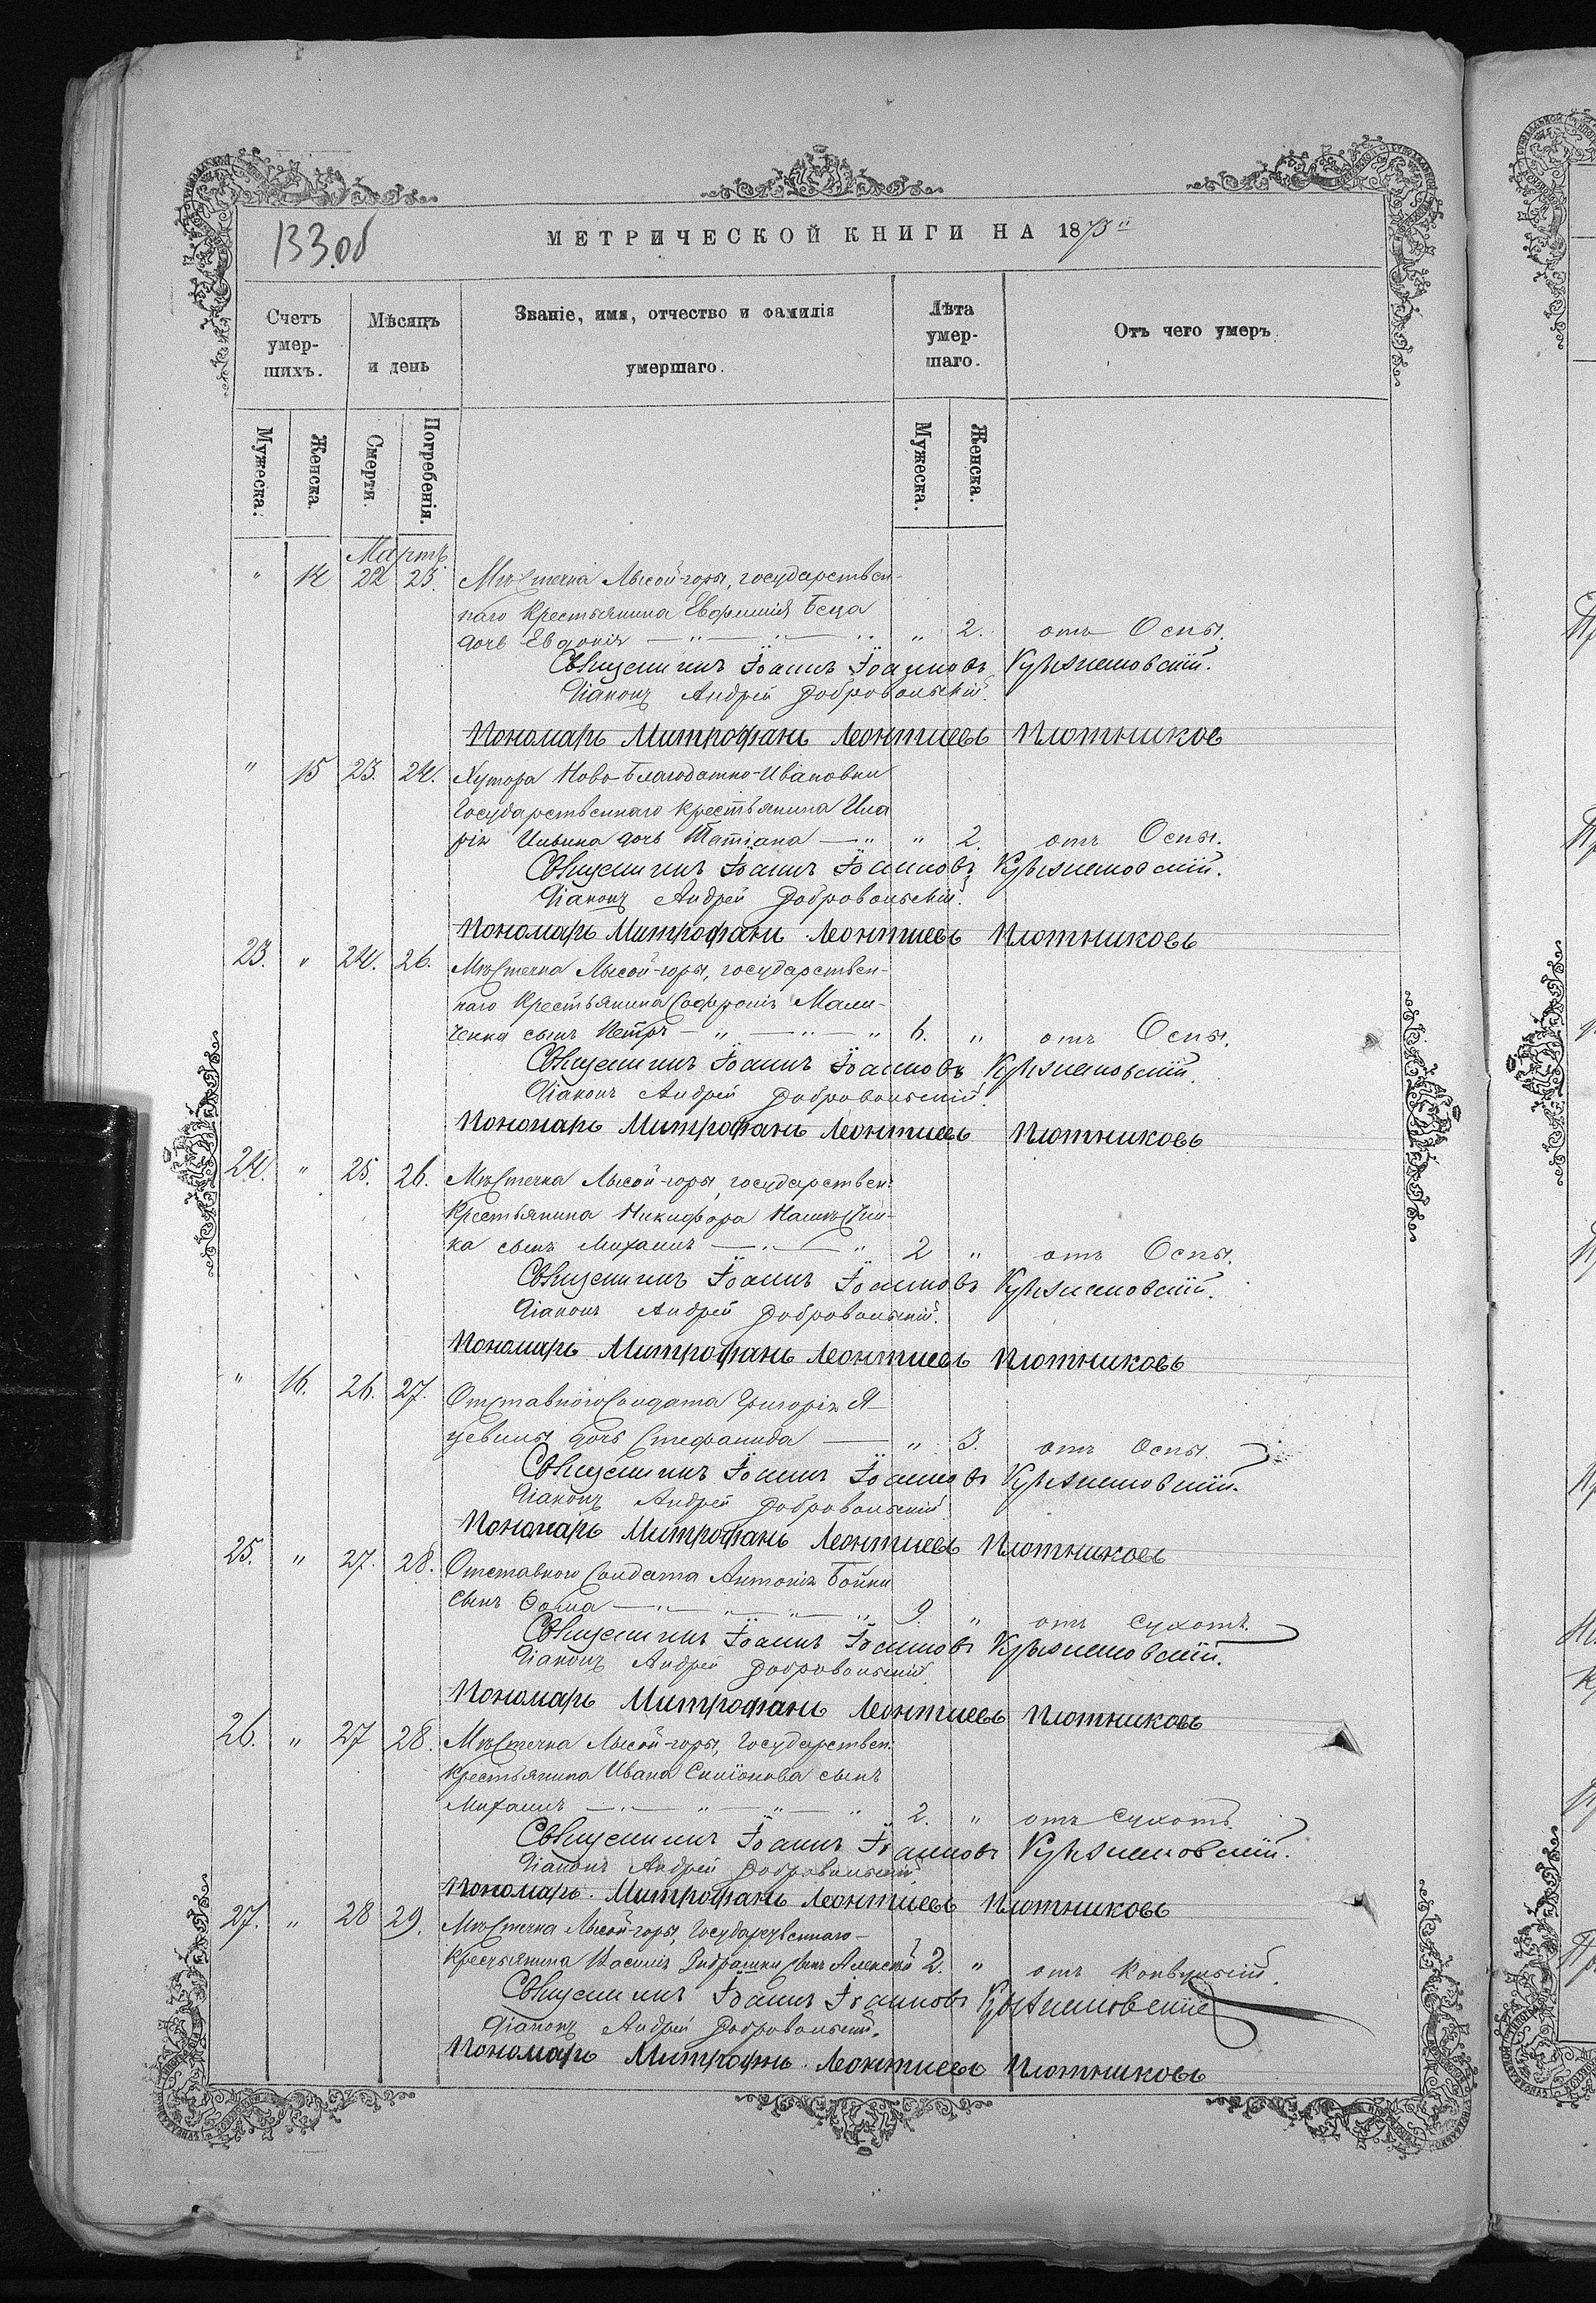 133 об
МЕТРИЧЕСКОЙ КНИГИ НА 1873й
Счетъ умер-шихъ.
Мѣсяцъ и день
Званіе, имя, отчество и фамилія умершаго.
Лѣта умер-шаго.
Отъ чего умеръ
Мужеска.
Женска.
Смерти.
Погребенія.
Мужеска.
Женска.
Мартъ
" 14 22 23. Мѣстечка Лысой-горы, государствен-
наго крестьянина Евфимія Беца
дочь Евдокія " 2. отъ Оспы.
Священникъ Іоаннъ Іоанновъ
Діаконъ Андрей Добровольскій.
Пономарь Митрофанъ Леонтиевъ Плотников
" 15 23. 24. Хутора Ново-Благодатно-Ивановки
Государственнаго крестьянина Ила
рія Ильина дочь Татіана " 2. отъ Оспы.
Священникъ Іоаннъ Іоанновъ
Діаконъ Андрей Добровольскій.
Пономарь Митрофанъ Леонтиевъ Плотниковъ
23. " 24. 26. Мѣстечка Лысой-горы, государствен-
наго крестьянина Софронія Мали-
ченка сынъ Петръ 6. " отъ Оспы.
Священникъ Іоаннъ Іоанновъ
Діаконъ Андрей Добровольскій.
Пономарь Митрофанъ Леонтиевъ Плотниковъ
24. " 25. 26. Мѣстечка Лысой-горы, государствен.
крестьянина Никифора
ка сынъ Михаилъ 2 " отъ Оспы.
Священникъ Іоаннъ Іоанновъ
Діаконъ Андрей Добровольскій.
Пономарь Митрофанъ Леонтиевъ Плотниковъ
" 16. 26. 27. Отставного Солдата Григорія Я-
цевины дочь Стефанида " 3. отъ Оспы.
Священникъ Іоаннъ Іоанновъ
Діаконъ Андрей Добровольскій
Пономарь Митрофанъ Леонтиевъ Плотниковъ
25. " 27. 28. Отставного Солдата Антонія Бойки
сынъ Ѳома 9. " отъ Сухотъ.
Священникъ Іоаннъ Іоанновъ
Діаконъ Андрей Добровольскій
Пономарь Митрофанъ Леонтиевъ Плотниковъ
26. " 27 28. Мѣстечка Лысой-горы, Государствен.
крестьянина Ивана сынъ
Михаилъ 2. " отъ Сухотъ.
Священникъ Іоаннъ Іоанновъ
Діаконъ Андрей Добровольскій
Пономарь Митрофанъ Леонтиевъ Плотниковъ
27. " 28 29. Мѣстечка Лысой-горы, Государственнаго
крестьянина Василія сынъ Алексѣй 2. " отъ Конвульсій.
Священникъ Іоаннъ Іоанновъ
Діаконъ Андрей Добровольскій.
Пономарь Митрофнъ Леонтиевъ Плотниковъ